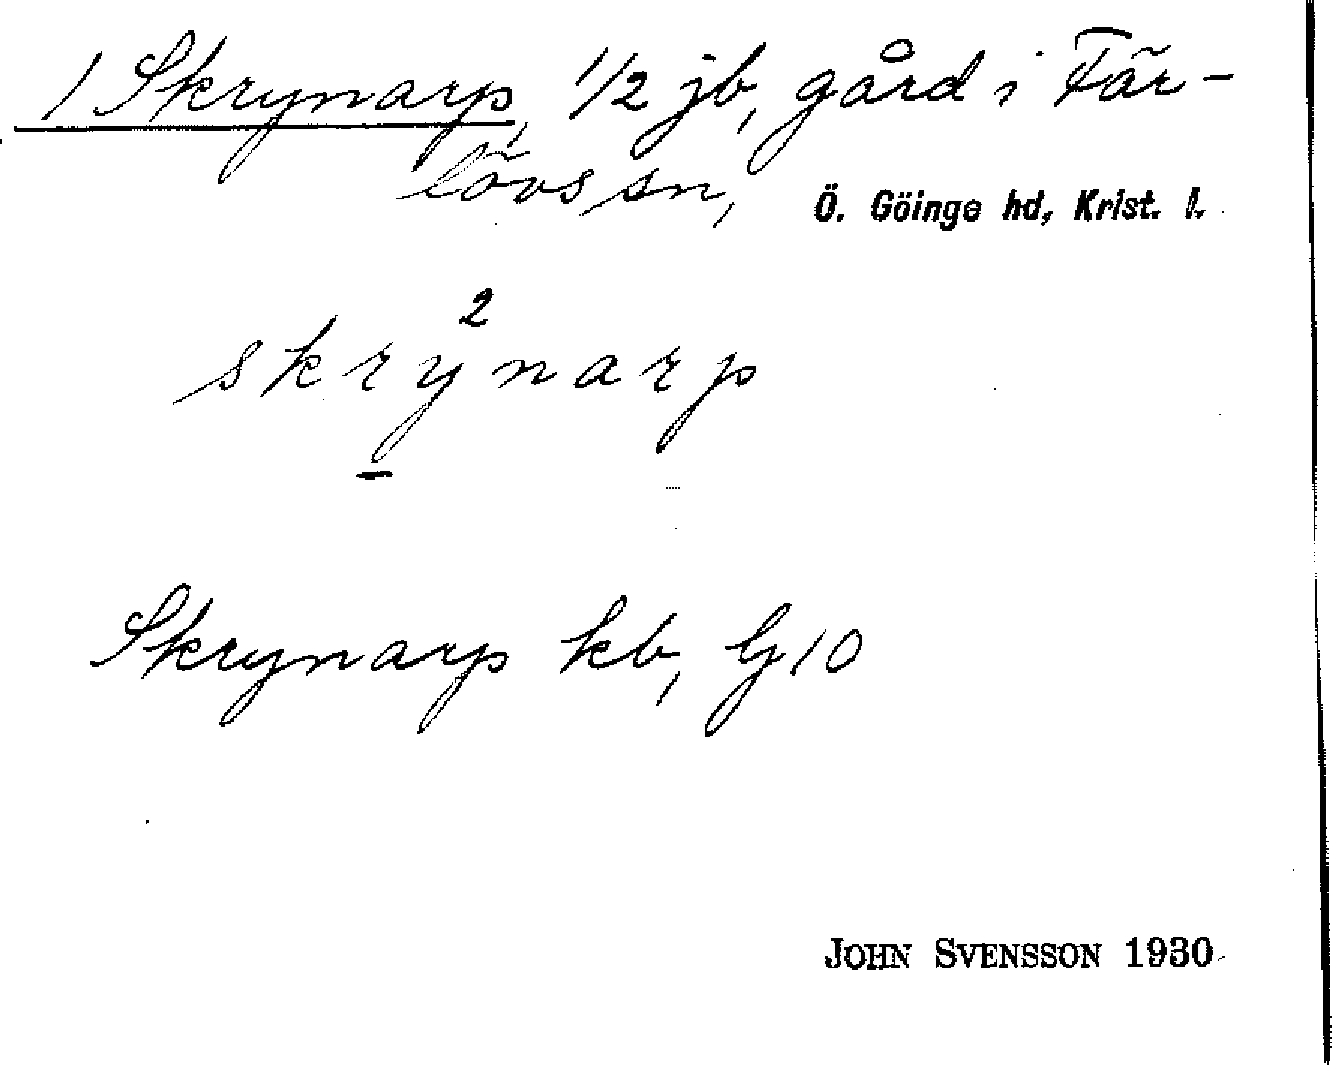 1 Skrynarp, 1/2 jb, gård i Fär-
lövs sn, Ö. Göinge hd, Krist. l.
skry²narp
Skrynarp kb, G10
JOHN SVENSSON 1930